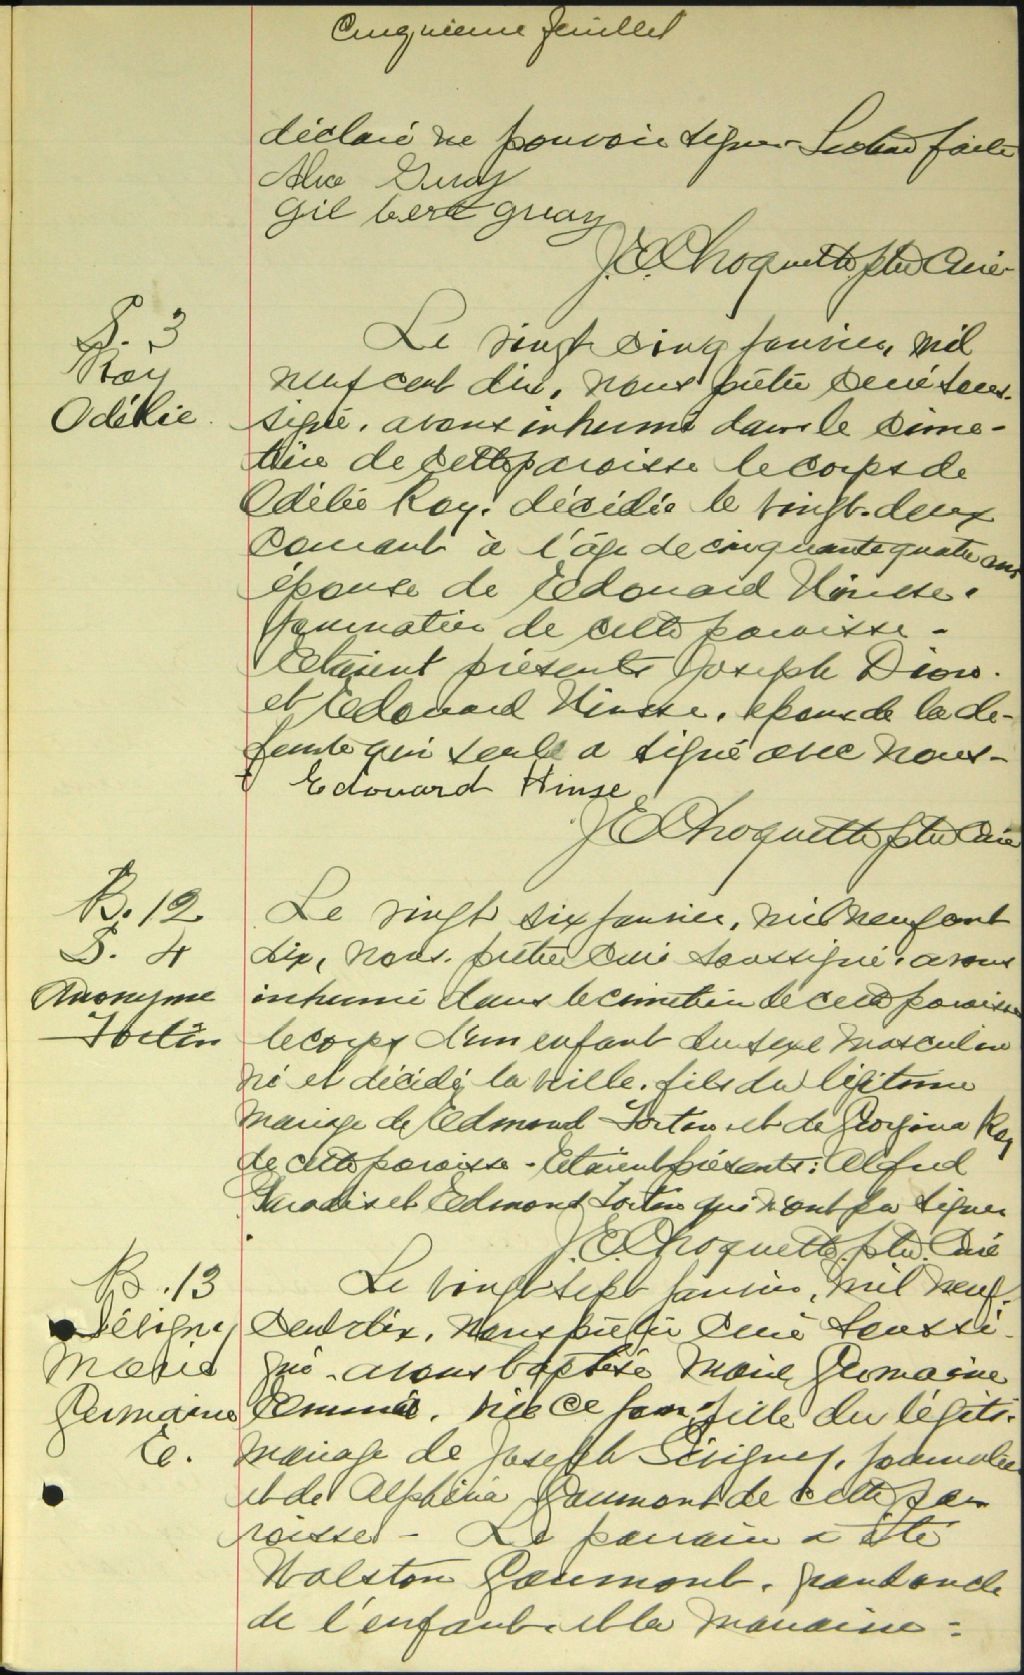 Cinquieme feuillet
déclaré ne pouvoir signer. Lecture faite
Alice Guay
Gilbert Guay
J.E. Choquette, ptre Curé
S. 3
Roy
Odélie.
Le vingt cinq janvier, mil
neuf cent dix, nous prêtre curé sous-
signé, avons inhumé dans le cime-
tière de cette paroisse le corps de
Odélie Roy, décédée le vingt-deux
courant à l'âge de cinquante quatre ans
épouse de Edouard Hinse,
journalier de cette paroisse -
Etaient présents Joseph Dion.
et Edouard Hinse, époux de la dé-
funte qui seul a signé avec nous -
Edouard Hinse
J E Choquette ptre Curé
B. 12
S. 4
Anonyme
Fortin
Le vingt six janvier, mil neuf cent
dix, nous, prêtre curé soussigné, avons
inhumé dans le cimetière de cette paroisse
le corps d'un enfant du sexe masculin
né et décédé la veille, fils du légitime
mariage de Edmond Fortin et de Georgina Roy
de cette paroisse - Etaient présents: Alfred
Paradis et Edmond Fortin qui n'ont pu signer
J. E. Choquette, ptre. Curé
B. 13
Sévigny
Marie
Germaine
E.
Le vingt sept janvier, mil neuf-
cent dix, nous prêtre curé soussi-
gné, avons baptisé Marie Germaine
née ce jour, fille du légiti-
mariage de Joseph Sévigny, journalier
et de Alphéna Gaumont de cette pa-
roisse - Le parrain a été
Walston Gaumont, grand oncle
de l'enfant et la marraine =